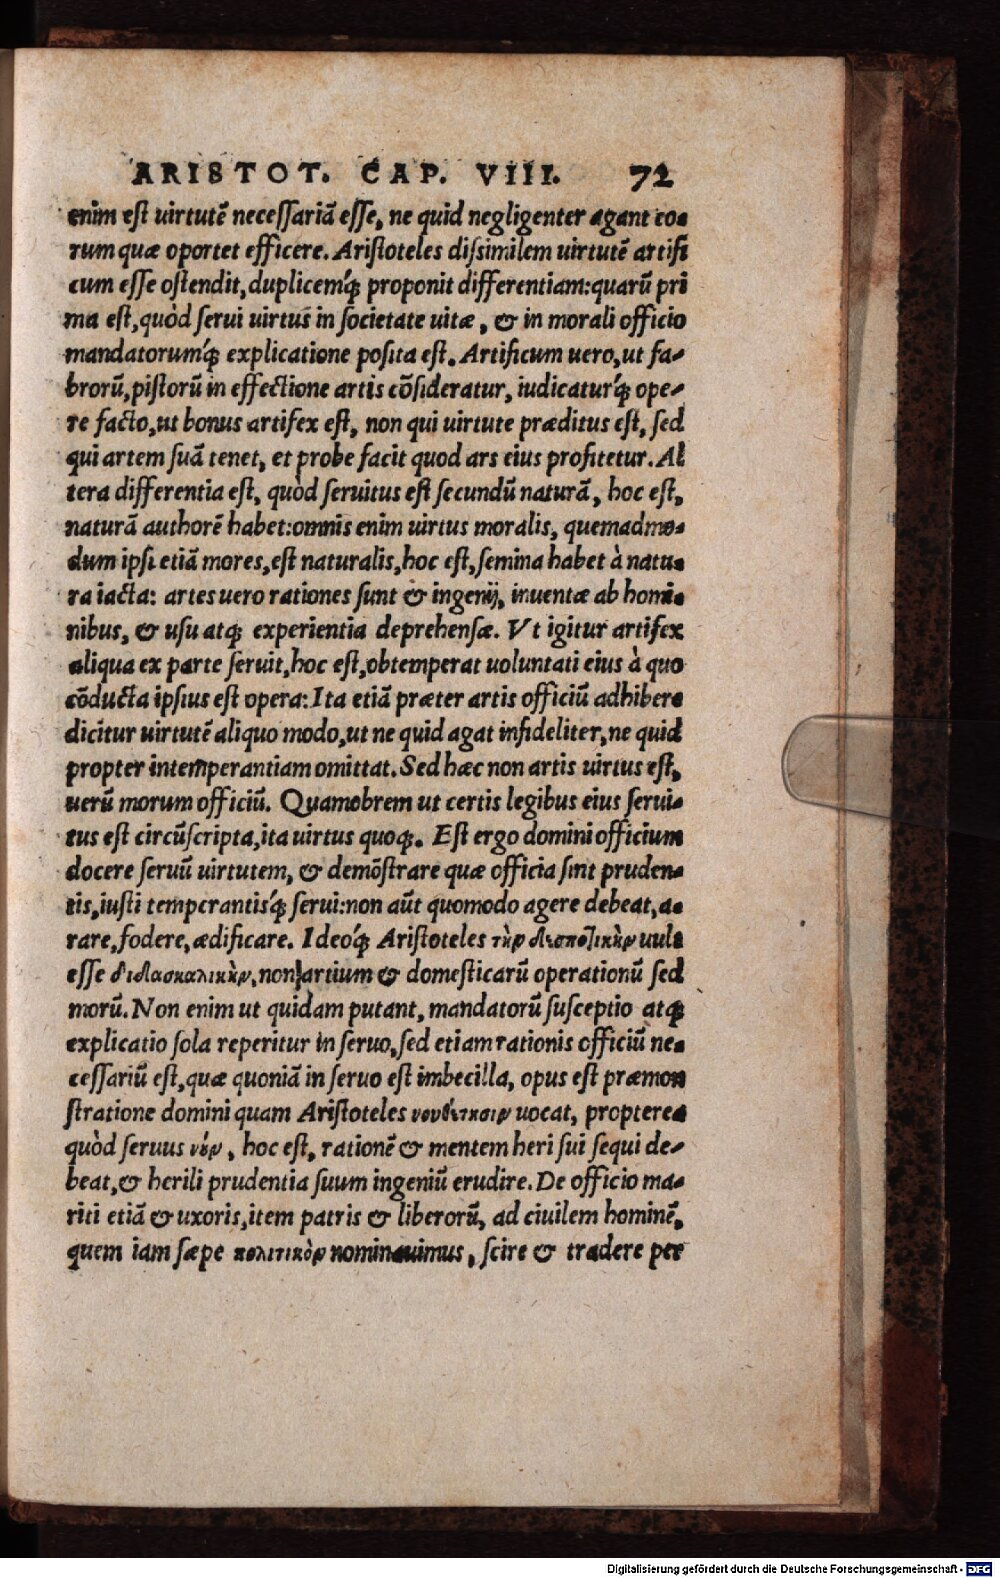 ARISTOT. CAP. VIII. 72
enim est uirtutē necessariā esse, ne quid negligenter agant eo-
rum quæ oportet efficere. Aristoteles dissimilem uirtutē artifi
cum esse ostendit, duplicemq́; proponit differentiam: quarū pri
ma est, quòd serui uirtus in societate uitæ, & in morali officio
mandatorumq́; explicatione posita est. Artificum uero, ut fa-
brorū, pistorū in effectione artis cōsideratur, iudicaturq́; ope-
re facto, ut bonus artifex est, non qui uirtute præditus est, sed
qui artem suā tenet, et probe facit quod ars eius profitetur. Al
tera differentia est, quòd seruitus est secundū naturā, hoc est,
naturā authorē habet: omnis enim uirtus moralis, quemadmo-
dum ipsi etiā mores, est naturalis, hoc est, semina habet à natu-
ra iacta: artes uero rationes sunt & ingenij, inuentæ ab homi-
nibus, & usu atq; experientia deprehensæ. Vt igitur artifex
aliqua ex parte seruit, hoc est, obtemperat uoluntati eius à quo
cōducta ipsius est opera: Ita etiā præter artis officiū adhibere
dicitur uirtutē aliquo modo, ut ne quid agat infideliter, ne quid
propter intemperantiam omittat. Sed hæc non artis uirtus est,
uerū morum officiū. Quamobrem ut certis legibus eius serui-
tus est circūscripta, ita uirtus quoq;. Est ergo domini officium
docere seruū uirtutem, & demōstrare quæ officia sint pruden-
tis, iusti temperantisq́; serui: non aūt quomodo agere debeat, a-
rare, fodere, ædificare. Ideoq́; Aristoteles τὴν δεσποτικὴν uult
esse διδασκαλικὴν, non artium & domesticarū operationū sed
morū. Non enim ut quidam putant, mandatorū susceptio atq;
explicatio sola reperitur in seruo, sed etiam rationis officiū ne-
cessariū est, quæ quoniā in seruo est imbecilla, opus est præmon
stratione domini quam Aristoteles νουθέτησιν uocat, propterea
quòd seruus νοῦν, hoc est, rationē & mentem heri sui sequi de-
beat, & herili prudentia suum ingeniū erudire. De officio ma-
riti etiā & uxoris, item patris & liberorū, ad ciuilem hominē,
quem iam sæpe πολιτικὸν nominauimus, scire & tradere per
Digitalisierung gefördert durch die Deutsche Forschungsgemeinschaft - DFG